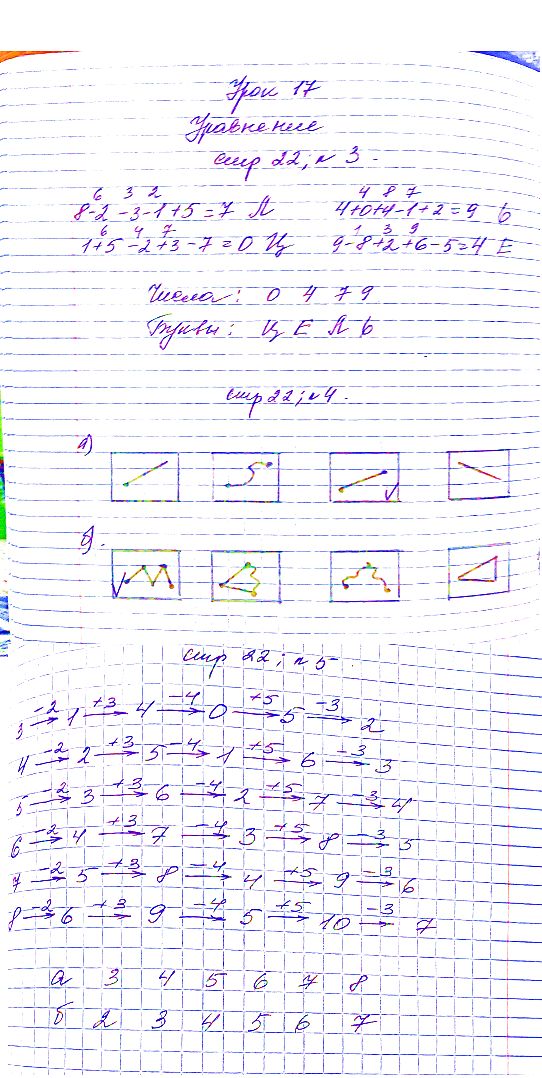 Урок 17
Уравнение
стр 22; № 3.
6 3 2 4 8 7
8-2-3-1+5=7 Л 4+0+4-1+2=9 Ь
6 4 7 1 3 9
1+5-2+3-7=0 Ц 9-8+2+6-5=4 Е
Числа: 0 4 7 9
Буквы: Ц Е Л Ь
стр 22; № 4.
а)
б).
стр 22; № 5.
3 -2→ 1 +3→ 4 -4→ 0 +5→ 5 -3→ 2
4 -2→ 2 +3→ 5 -4→ 1 +5→ 6 -3→ 3
5 -2→ 3 +3→ 6 -4→ 2 +5→ 7 -3→ 4
6 -2→ 4 +3→ 7 -4→ 3 +5→ 8 -3→ 5
7 -2→ 5 +3→ 8 -4→ 4 +5→ 9 -3→ 6
8 -2→ 6 +3→ 9 -4→ 5 +5→ 10 -3→ 7
а 3 4 5 6 7 8
б 2 3 4 5 6 7